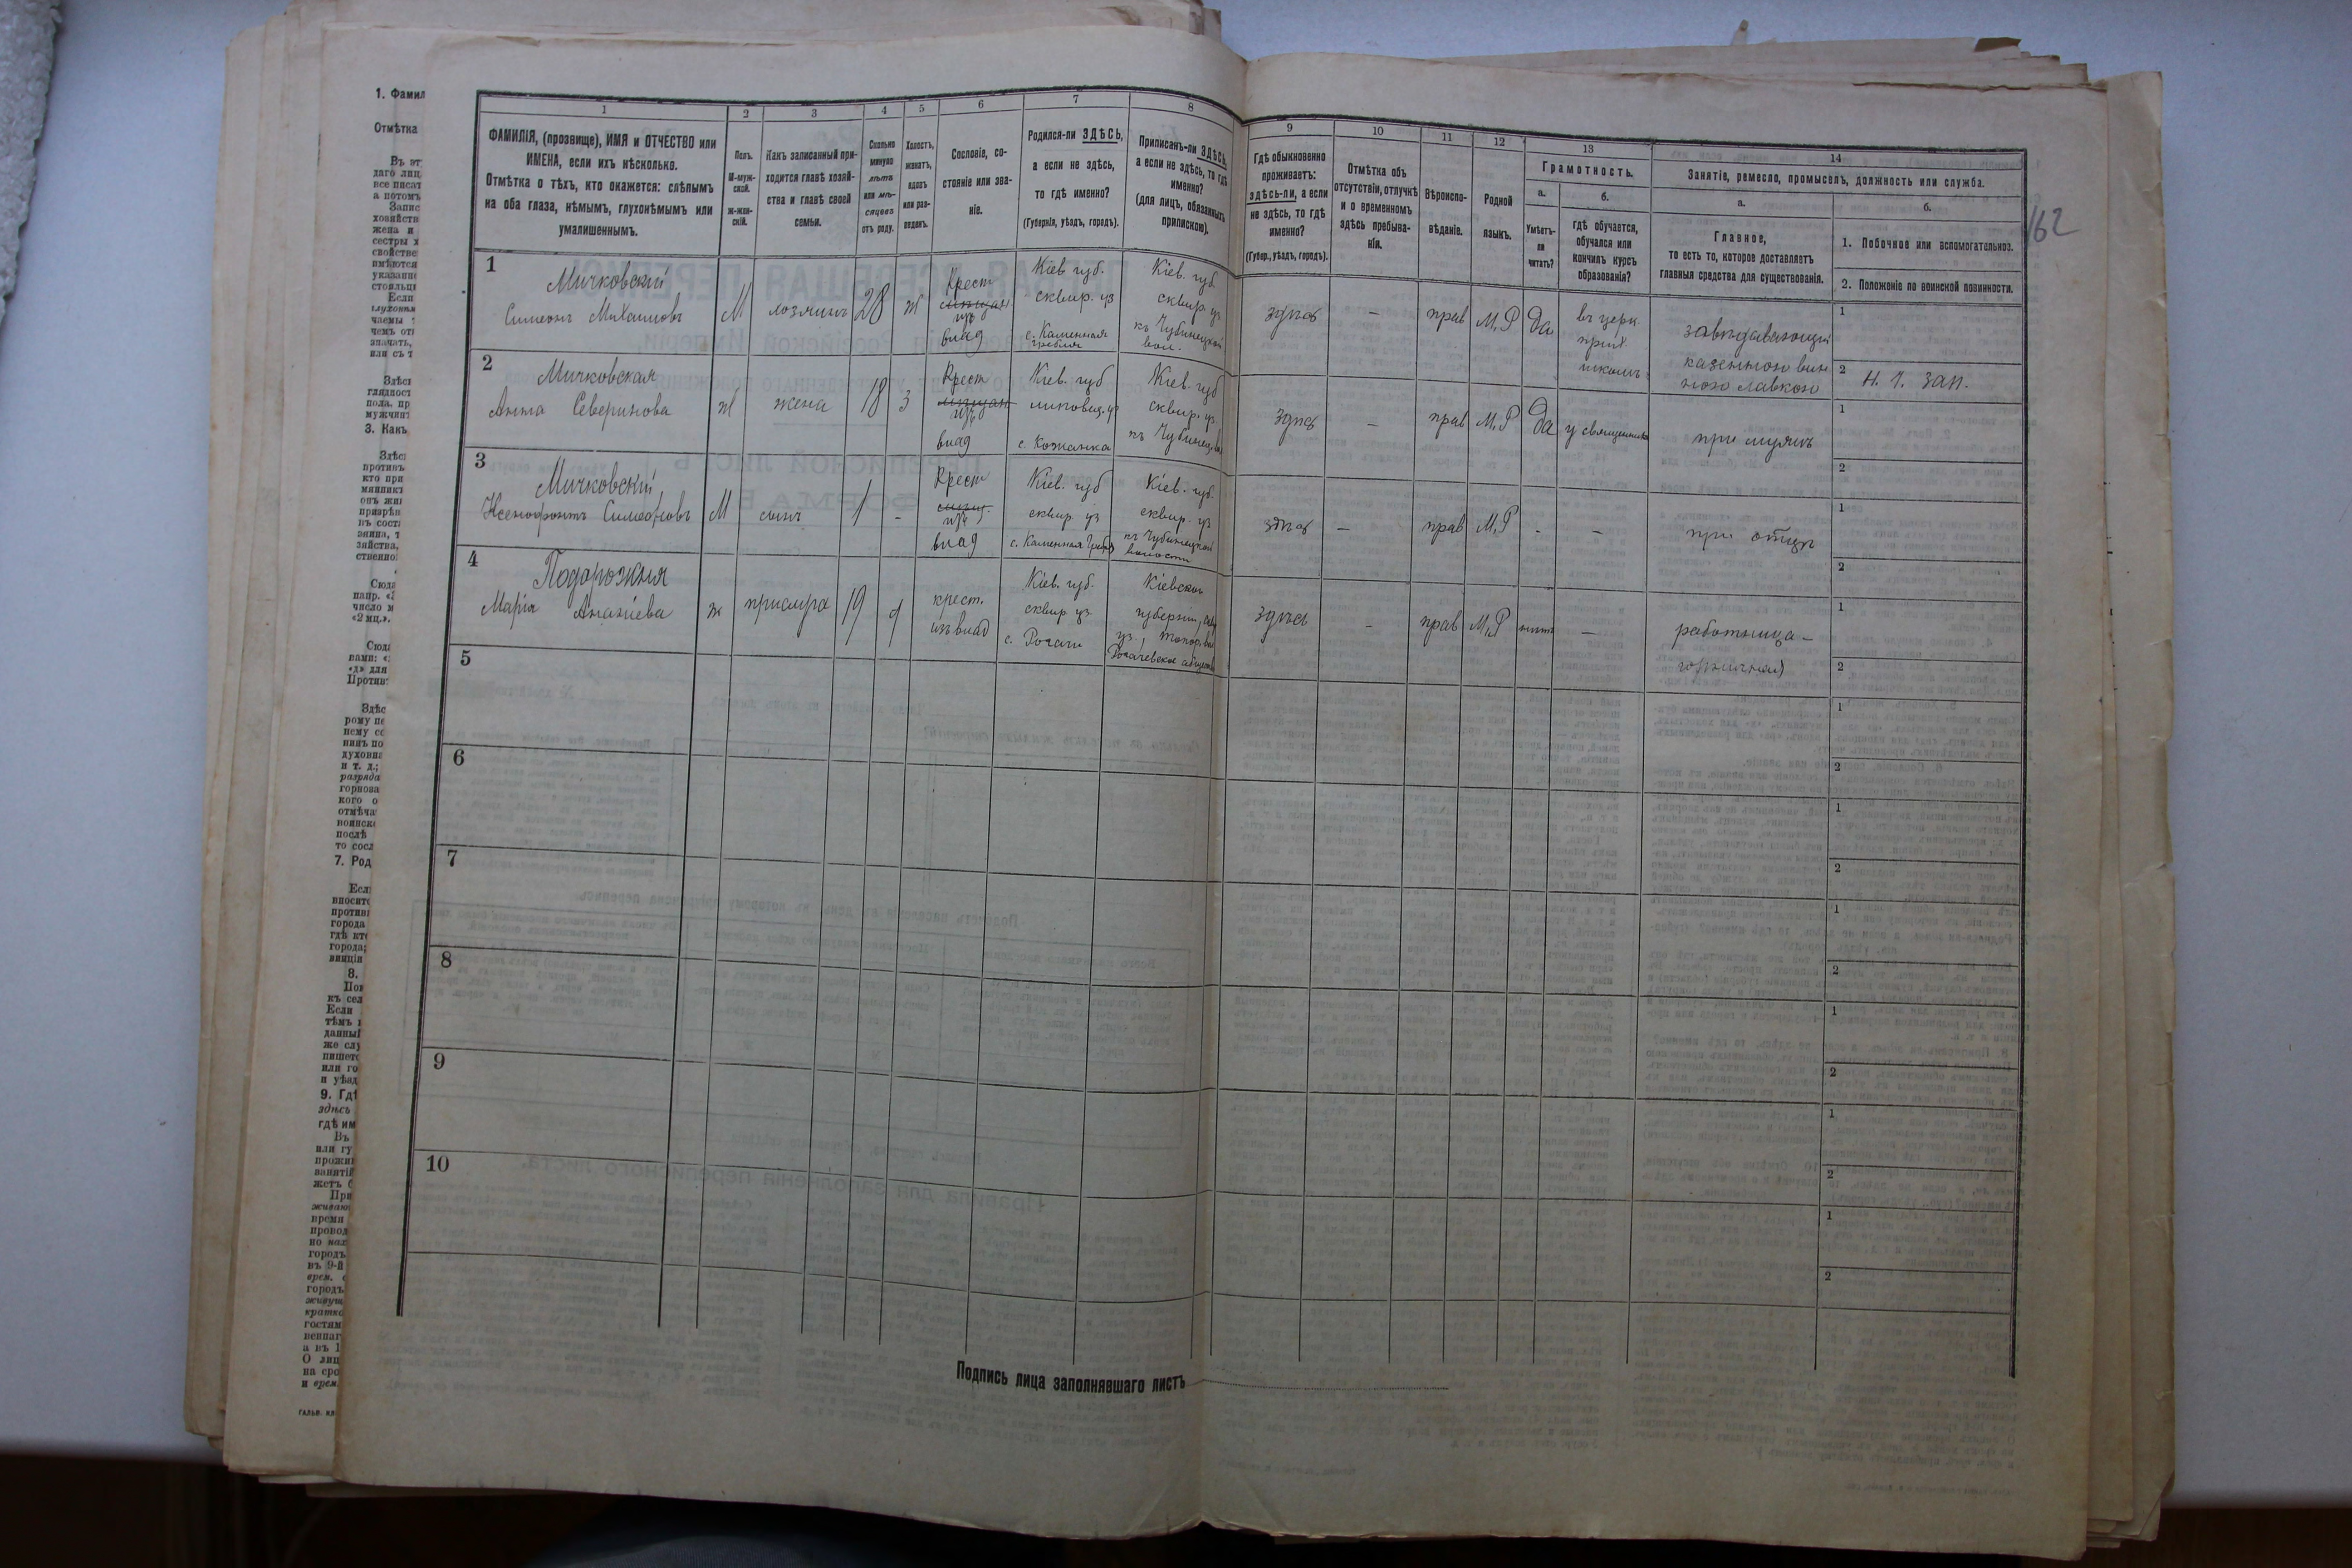 162
1 2 3 4 5 6 7 8 9 10 11 12 13 14
ФАМИЛІЯ, (прозвище), ИМЯ и ОТЧЕСТВО или
ИМЕНА, если ихъ нѣсколько.
Отмѣтка о тѣхъ, кто окажется: слѣпымъ
на оба глаза, нѣмымъ, глухонѣмымъ или
умалишеннымъ.
Полъ.
М-муж-
ской.
Ж-жен-
скій.
Какъ записанный при-
ходится главѣ хозяй-
ства и главѣ своей
семьи.
Сколько
минуло
лѣтъ
или мѣ-
сяцевъ
отъ роду.
Холостъ,
женатъ,
вдовъ
или раз-
веденъ.
Сословіе, со-
стояніе или зва-
ніе.
Родился-ли ЗДѢСЬ,
а если не здѣсь,
то гдѣ именно?
(Губернія, уѣздъ, городъ).
Приписанъ-ли ЗДѢСЬ,
а если не здѣсь, то гдѣ
именно?
(для лицъ, обязанныхъ
припискою).
Гдѣ обыкновенно
проживаетъ:
здѣсь-ли, а если
не здѣсь, то гдѣ
именно?
(Губер., уѣздъ, городъ).
Отмѣтка объ
отсутствіи, отлучкѣ
и о временномъ
здѣсь пребыва-
ніи.
Вѣроиспо-
вѣданіе.
Родной
языкъ.
Грамотность.
а.
Умѣетъ-
ли
читать?
б.
гдѣ обучается,
обучался или
кончилъ курсъ
образованія?
Занятіе, ремесло, промыселъ, должность или служба.
а.
Главное,
то есть то, которое доставляетъ
главныя средства для существованія.
б.
1. Побочное или вспомогательное.
2. Положеніе по воинской повинности.
1
Мичковскій
Симеонъ Михаиловъ
М
хозяинъ
28
ж
Крест
изъ
влад
Кіев. губ.
сквир. уз
с. Каменная
гребля
Кіев. губ
сквир. уз
къ Чубинецкой
вол.
здѣсь
-
прав
М.Р
Да
въ церк.
прих.
школѣ
завѣдывающій
казенною вин
ною лавкою
1
2 Н. Ч. зап.
2
Мичковская
Анна Северинова
ж
жена
18
з
Крест
изъ
влад
Кіев. губ
липовец. уз
с. Кожанка
Кіев. губ
сквир. уз
къ Чубинец. вол
здѣсь
-
прав
М.Р
Да
у священника
при мужѣ
1
2
3
Мичковскій
Ксенофонтъ Симеоновъ
М
сынъ
1
-
Крест
изъ
влад
Кіев. губ
сквир уз
с. Каменная Гребля
Кіев. губ.
сквир. уз
къ Чубинецкой
волости
здѣсь
-
прав
М.Р
-
-
при отцѣ
1
2
4
Подорожня
Марія Ананіева
ж
прислуга
19
д
крест.
изъ влад
Кіев. губ.
сквир уз
с. Рогачи
Кіевской
губерніи, скв
уз., топор. вол
Рогачевское общество
здѣсь
-
прав
М.Р
нѣтъ
-
работница -
горничная
1
2
5
1
2
6
1
2
7
1
2
8
1
2
9
1
2
10
1
2
Подпись лица заполнявшаго листъ